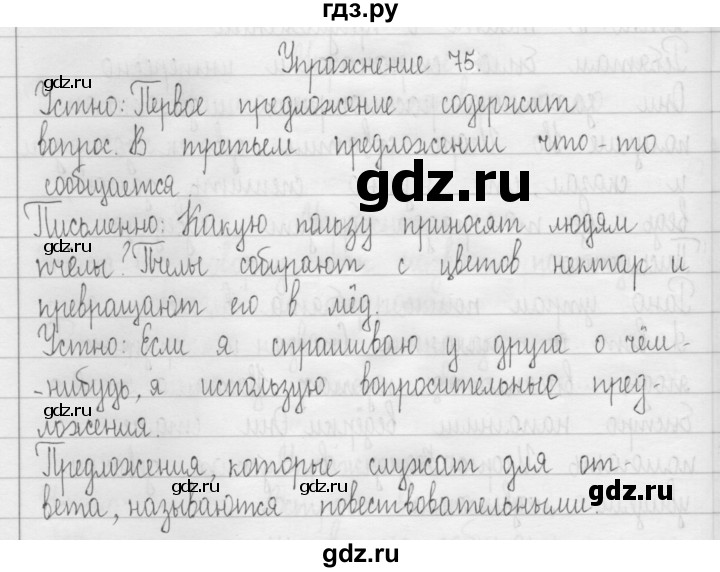 гдз.ру
Упражнение 75.
Устно: Первое предложение содержит
вопрос. В третьем предложении что-то
сообщается.
Письменно: Какую пользу приносят людям
пчёлы? Пчелы собирают с цветов нектар и
превращают его в мёд.
Устно: Если я спрашиваю у друга о чём-
-нибудь, я использую вопросительные пред-
ложения.
Предложения, которые служат для от-
вета, называются повествовательными.
gdz.ru
gdz.ru
gdz.ru
gdz.ru
gdz.ru
gdz.ru
gdz.ru
gdz.ru
gdz.ru
gdz.ru
gdz.ru
gdz.ru